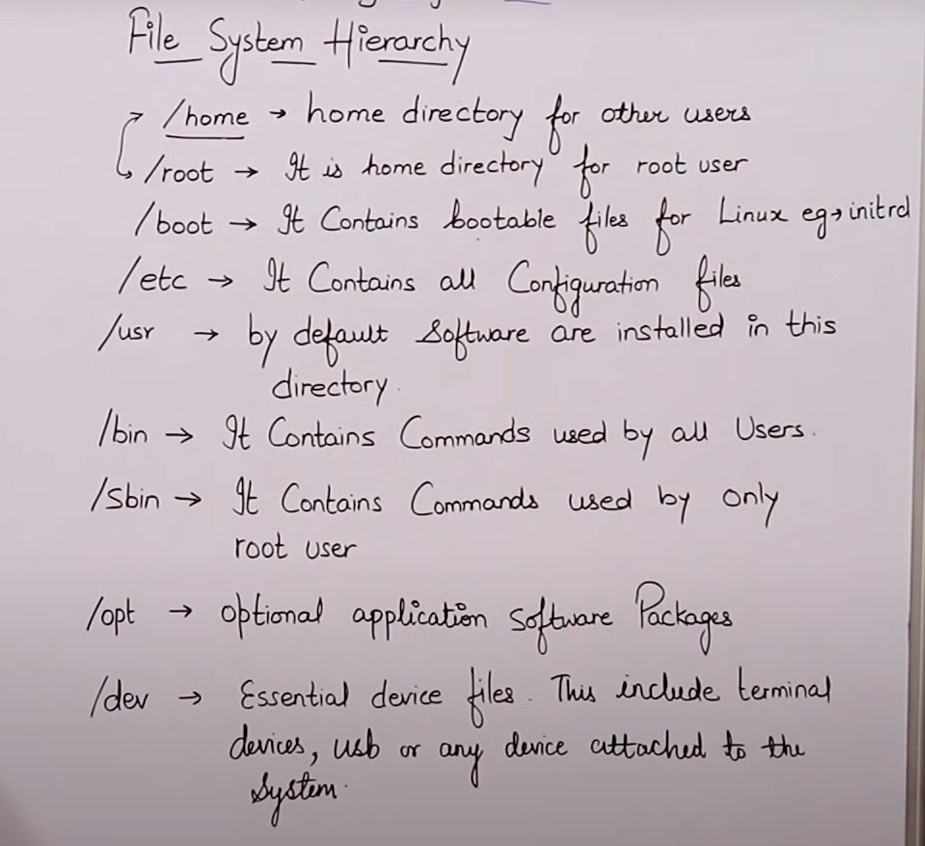 File System Hierarchy
/home → home directory for other users
/root → It is home directory for root user
/boot → It Contains bootable files for Linux eg→ initrd
/etc → It Contains all Configuration files
/usr → by default Software are installed in this
directory.
/bin → It Contains Commands used by all Users.
/Sbin → It Contains Commands used by only
root user
/opt → optional application Software Packages
/dev → Essential device files. This include terminal
devices, usb or any device attached to the
System.